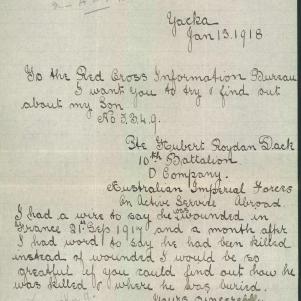 Yacka
Jan 13. 1918
To the Red Cross Information Bureau
I want you to try & find out
about my Son
No 3349.
Pte Hubert Roydan Dack
10th Battalion
D Company.
Australian Imperial Forces
on Active Service Abroad.
I had a wire to say he was wounded in
France 21st Sep 1917 and a month aftr
I had word to say he had been killed
instead of wounded I would be so
greatful if you could find out how he
was killed & where he was buried.
Yours sincerely